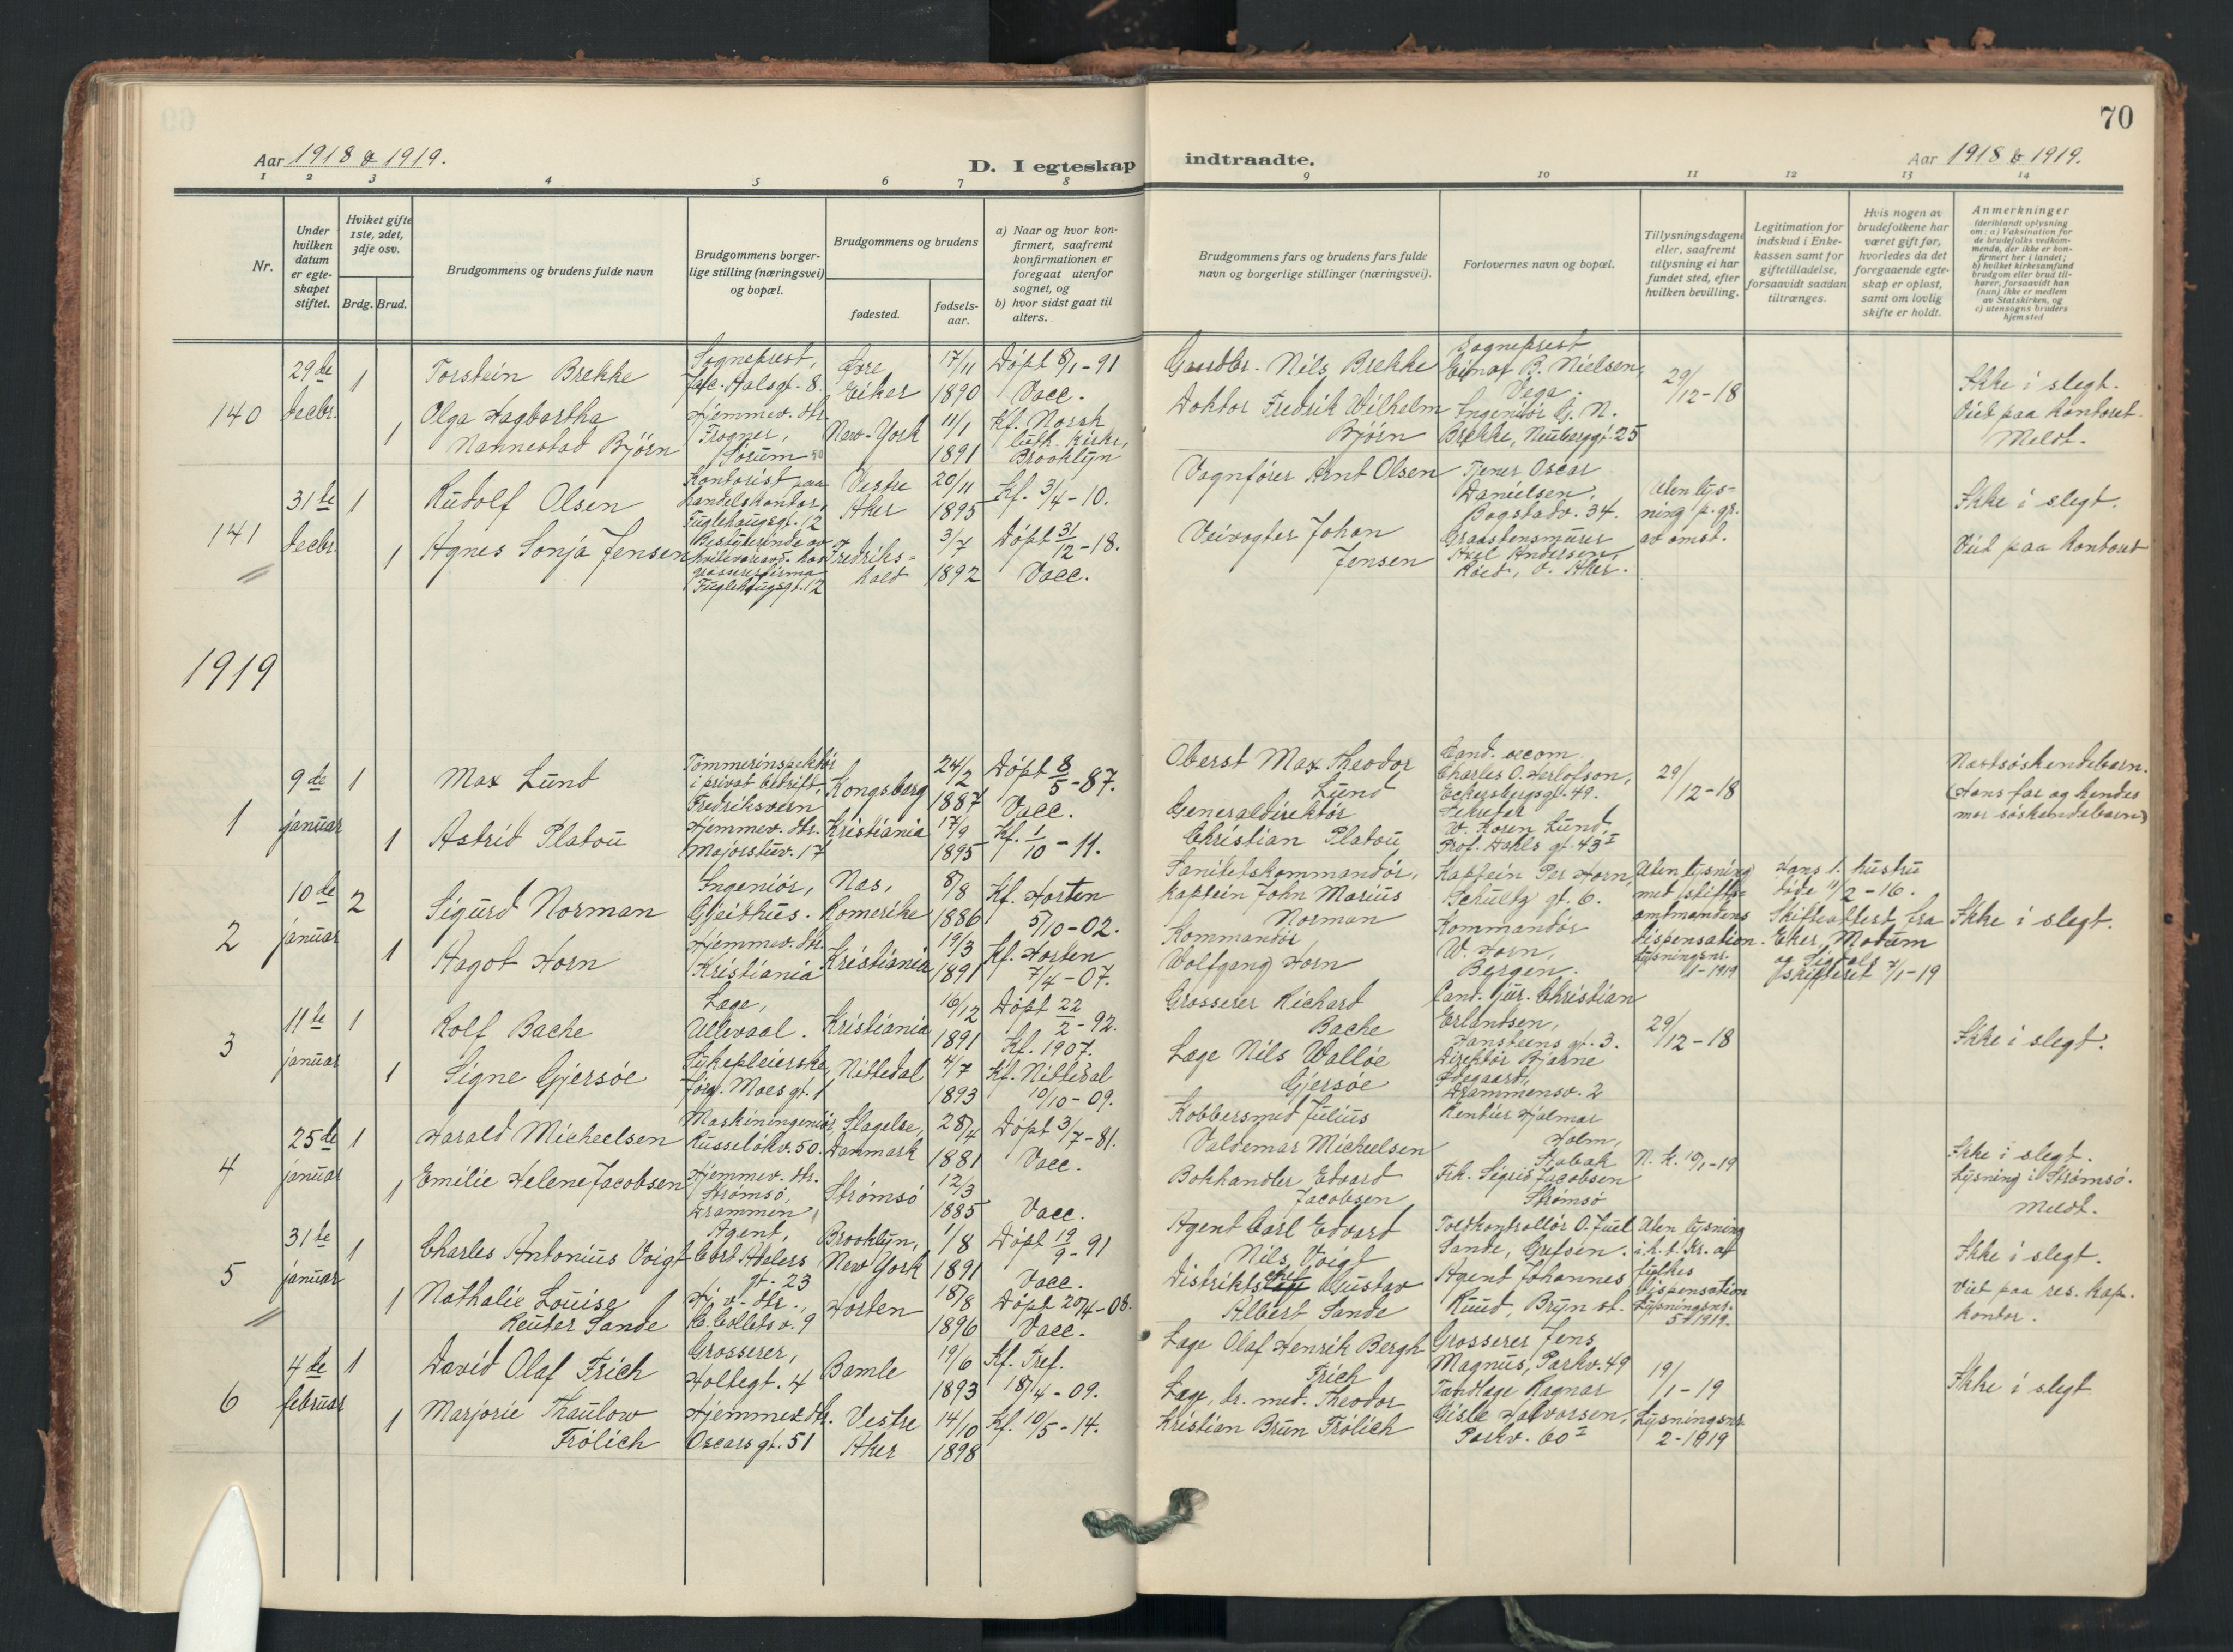 70
Aar 1918 & 1919.
D. I egteskap indtraadte.
Aar 1918 & 1919.
1 2 3 4 5 6 7 8 9 10 11 12 13 14
Nr.
Under
hvilken
datum
er egte-
skapet
stiftet.
Hviket gifte
1ste, 2det,
3dje osv.
Brdg. Brud.
Brudgommens og brudens fulde navn
Brudgommens borger-
lige stilling (næringsvei)
og bopæl.
Brudgommens og brudens
fødested.
fødsels-
aar.
a) Naar og hvor kon-
firmert, saafremt
konfirmationen er
foregaat utenfor
sognet, og
b) hvor sidst gaat til
alters.
Brudgommens fars og brudens fars fulde
navn og borgerlige stillinger (næringsvei).
Forlovernes navn og bopæl.
Tillysningsdagene
eller, saafremt
tillysning ei har
fundet sted, efter
hvilken bevilling.
Legitimation for
indskud i Enke-
kassen samt for
giftetilladelse,
forsaavidt saadan
tiltrænges.
Hvis nogen av
brudefolkene har
været gift før,
hvorledes da det
foregaaende egte-
skap er opløst,
samt om lovlig
skifte er holdt.
Anmerkninger
(deriblandt oplysning
om: a) Vaksination for
de brudefolks vedkom-
mende, der ikke er kon-
firmert her i landet;
b) hvilket kirkesamfund
brudgom eller brud til-
hører, forsaavidt han
(hun) ikke er medlem
av Statskirken, og
c) utensogns bruders
hjemsted
140
29de
decbr.
1
Torstein Brekke
Sogneprest,
Jac. Aalsgt. 8.
Øvre
Eiker
17/11
1890
Døpt 8/1-91
Vacc.
Gaardbr. Nils Brekke
Sogneprest
Einar B. Nielsen,
Vega.
29/12-18
Ikke i slegt.
Viet paa kontoret.
Meldt.
1
Olga Hagbartha
Nannestad Bjørn
Hjemmev. dtr.
Frogner,
Sørum
New-York
11/1
1891
Kf. Norsk
luth. kirke,
Brooklyn
Doktor Fredrik Wilhelm
Bjørn
Ingeniør G. N.
Brekke, Neuberggt. 25
141
31te
decbr.
1
Rudolf Olsen
Kontorist paa
handelskontor,
Fuglehaugsgt. 12
Vestre
Aker
20/11
1895
Kf. 3/4-10.
Vognfører Arnt Olsen
Tjener Oscar
Danielsen,
Bogstadv. 34.
Uten lys-
ning p. gr.
av omst.
Ikke i slegt.
Viet paa kontoret
1
Agnes Sonja Jensen
Bestyrerinde av
hvitevareavd. hos
grossererfirma
Fuglehaugsgt. 12
Fredriks-
hald
3/7
1892
Døpt 31/12-18.
Vacc.
Veivogter Johan
Jensen
Graastensmurer
Axel Andersen,
Røed, V. Aker.
1919
1
9de
januar
1
Max Lund
Tømmerinspektør
i privat bedrift,
Fredriksvern
Kongsberg
24/2
1887
Døpt 8/5-87.
Vacc.
Oberst Max Theodor
Lund
Cand. oecom
Charles O. Herlofson,
Eckersbergsgt. 49.
29/12-18
Næstsøskendebarn.
(Hans far og hendes
mor søskendebarn)
1
Astrid Platou
Hjemmev. dtr.
Majorstuv. 17
Kristiania
17/9
1895
Kf. 1/10-11.
Generaldirektør
Christian Platou
Sekretær
W. Koren Lund,
Prof. Dahls gt. 43 I
2
10de
januar
2
Sigurd Norman
Ingeniør,
Gjeithus.
Nes,
Romerike
8/8
1886
Kf. Horten
5/10-02.
Sanitetskommandør,
kaptein John Marius
Norman
Kaptein Per Horn,
Schultz gt. 6.
Uten lysning
med stifts-
amtmandens
dispensation.
Lysningsnr.
1-1919
Hans 1. hustru
døde 11/2-16.
Skifteattest fra
Eker, Modum
og Sigdals
skifteret 7/1-19
Ikke i slegt.
1
Aagot Horn
Hjemmev. dtr.
Kristiania
Kristiania
19/3
1891
Kf. Horten
7/4-07.
Kommandør
Wolfgang Horn
Kommandør
W. Horn,
Bergen.
3
11te
januar
1
Rolf Bache
Læge,
Ullevaal.
Kristiania
16/12
1891
Døpt 22/2-92.
Kf. 1907.
Grosserer Richard
Bache
Cand. jur. Christian
Erlandsen,
Hansteens gt. 3.
29/12-18
Ikke i slegt.
1
Signe Gjersøe
Sykepleierske
Jørg. Moes gt. 1
Nittedal
4/7
1893
Kf. Nittedal
10/10-09.
Læge Nils Walløe
Gjersøe
Direktør Bjarne
Ødegaard,
Drammensv. 2
4
25de
januar
1
Harald Micheelsen
Maskiningeniør,
Russeløkv. 50.
Slagelse,
Danmark
28/4
1881
Døpt 3/7-81.
Vacc.
Kobbersmed Julius
Valdemar Micheelsen
Rentier Hjalmar
Holm,
Stabæk
N. k. 19/1-19
Ikke i slegt.
Lysning i Strømsø.
Meldt.
1
Emilie Helene Jacobsen
Hjemmev. dtr.
Strømsø,
Drammen
Strømsø
12/3
1885
Vacc.
Bokhandler Edvard
Jacobsen
Frk. Sigrid Jacobsen
Strømsø
5
31te
januar
1
Charles Antonius Voigt
Agent,
Cort Adelers
gt. 23
Brooklyn,
New York
1/8
1891
Døpt 19/9-91
Vacc.
Agent Carl Edvard
Nils Voigt
Toldkontrollør O. Juul
Sande, Grefsen.
Uten lysning
i h. t. Kr. a
fylkes
dispensation
Lysningsnr.
5 1919.
Ikke i slegt.
Viet paa res. kap.
kontor.
1
Nathalie Louise
Reuter Sande
Hj. v. dtr.,
C. Colletsv. 9
Horten
18/8
1896
Døpt 20/4-08.
Vacc.
Distriktschef Gustav
Albert Sande
Agent Johannes
Ruud, Bryn st.
6
4de
februar
1
David Olaf Frich
Grosserer,
Holtegt. 4
Bamle
19/6
1893
Kf. Tref.
18/4-09.
Læge Olaf Henrik Bergh
Frich
Grosserer Jens
Magnus, Parkv. 49
19/1-19
Lysningsnr.
2-1919
Ikke i slegt
1
Marjorie Thaulow
Frölich
Hjemmev. dtr.
Oscars gt. 51
Vestre
Aker
14/10
1898
Kf. 10/5-14.
Læge, dr. med. Theodor
Kristian Brun Frölich
Tandlæge Ragnar
Gisle Halvorsen,
Parkv. 60 I